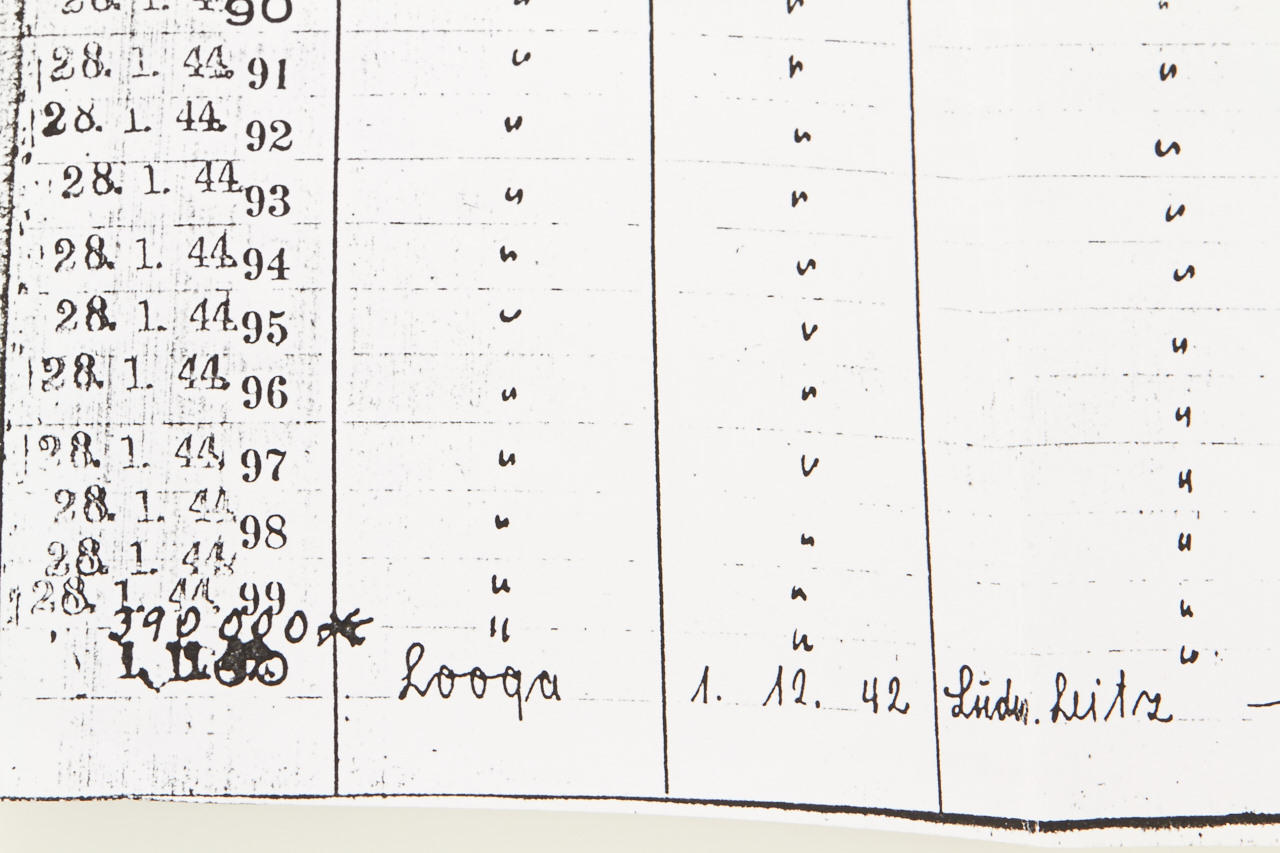 28. 1. 44. 90 " " "
28. 1. 44. 91 " " "
28. 1. 44. 92 " " "
28. 1. 44. 93 " " "
28. 1. 44. 94 " " "
28. 1. 44. 95 " " "
28. 1. 44. 96 " " "
28. 1. 44. 97 " " "
28. 1. 44. 98 " " "
28. 1. 44.
28. 1. 44. 99 " " "
390 000 " " "
Looga 1. 12. 42 Ludw. Leitz —